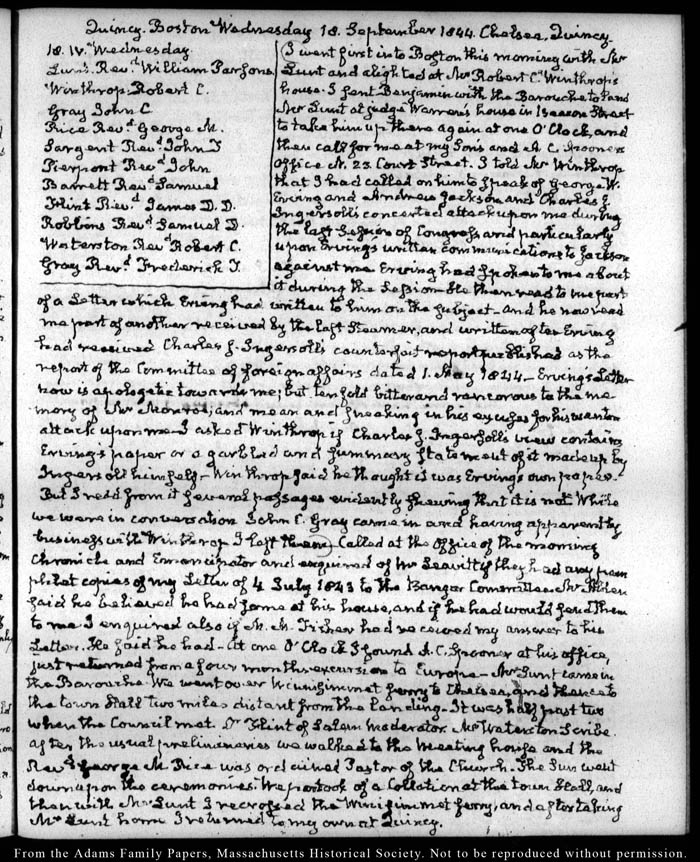 Quincy. Boston Wednesday 18. September 1844. Chelsea, Quincy.
18. IV. Wednesday.
Lunt. Revd. William Parsons
Winthrop. Robert C.
Gray John C
Rice Revd. George M.
Sargent Revd. John T
Pierpont Revd. John
Barrett Revd. Samuel
Flint Revd. James D.D.
Robbins Revd. Samuel D.
Waterston Revd. Robert C.
Gray Revd. Frederick T.
I went first into Boston this morning with Mr
Lunt and alighted at Mr Robert C. Winthrop's
house. I sent Benjamin with the Barouche to land
Mr Lunt at judge Warren's house in Beacon Street
to take him up there again at one O'Clock, and
then call for me at my Son's and A. C. Spooner's
Office N. 23 Court Street. I told Mr Winthrop
that I had called on him to speak of George W.
Erving and Andrew Jackson and Charles J.
Ingersoll's concerted attack upon me during
the last Session of Congress and particularly
upon Erving's written communications to Jackson
against me. Erving had spoken to me about
it during the Session. He then read to me part
of a Letter which Erving had written to him on the subject - and he now read
me part of another received by the last Steamer, and written after Erving
had received Charles J. Ingersoll's counterfeit report published as the
report of the Committee of foreign affairs dated 1. May 1844 - Erving's Letter
now is apologetic towards me; but tenfold bitter and rancorous to the me-
mory of Mr Monroe, and mean and sneaking in his excuses for his wanton
attack upon me - I asked Winthrop if Charles J. Ingersoll's view contains
Erving's paper or a garbled and summary statement of it made up by
Ingersoll himself - Winthrop said he thought it was Erving's own paper.
But I read from it several passages evidently shewing that it is not. While
we were in conversation John C. Gray came in and having apparently
business with Winthrop I left them. Called at the office of the morning
Chronicle and Emancipator and enquired of Mr Leavitt if they had any pam-
phlet copies of my Letter of 4 July 1843 to the Bangor Committee. Mr
said he believed he had some at his house, and if he had would send them
to me. I enquired also if M. M. Fisher had received my answer to his
Letter. He said he had - At one O'Clock I found A. C. Spooner at his office,
just returned from a four months excursion to Europe - Mr Lunt came in
the Barouche. We went over Winnisimmet ferry to Chelsea, and thence to
the town Hall two miles distant from the landing - It was half past two
when the Council met. Dr Flint of Salem Moderator. Mr Waterston Scribe.
after the usual preliminaries we walked to the Meeting house and the
Revd. George M. Rice was ordained Pastor of the Church. The Sun went
down upon the ceremonies. We partook of a Collation at the town Hall, and
then with Mr Lunt I recrossed the Winnisimmet ferry, and after taking
Mr Lunt home I returned to my own at Quincy.
From the Adams Family Papers, Massachusetts Historical Society. Not to be reproduced without permission.